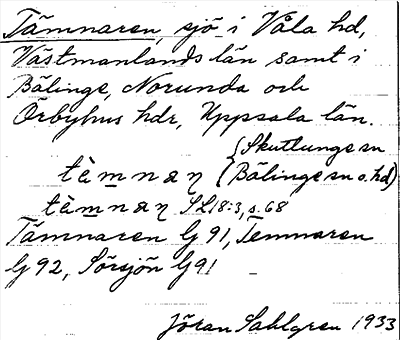 Tämnaren, sjö i Våla hd,
Västmanlands län samt i
Bälinge, Norunda och
Örbyhus hdr, Uppsala län.
{Skuttunge sn
tèmnaŋ (Bälinge sn o. hd)
tèmnaŋ SL18:3, s. 68
Tämnaren G 91, Temnaren
G 92, Sörsjön G 91
Jöran Sahlgren 1933